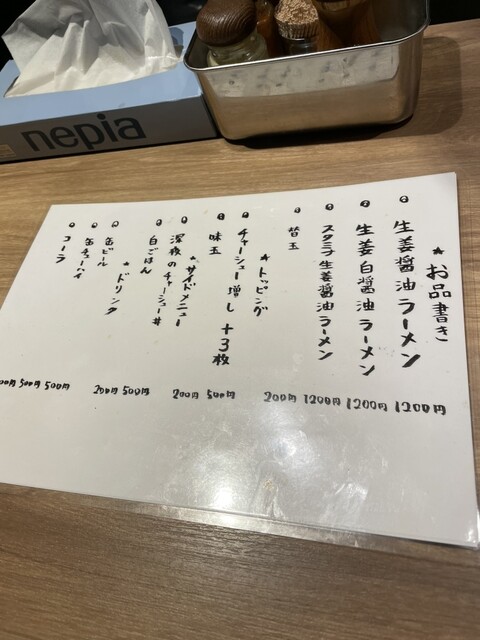 nepia
★お品書き
● 生姜醤油ラーメン 1200円
● 生姜白醤油ラーメン 1200円
● スタミナ生姜醤油ラーメン 1200円
● 替玉 200円
★トッピング
● チャーシュー増し+3枚 500円
● 味玉 200円
★サイドメニュー
● 深夜のチャーシュー丼 500円
● 白ごはん 200円
★ドリンク
● 缶ビール 500円
● 缶チューハイ 500円
● コーラ 00円